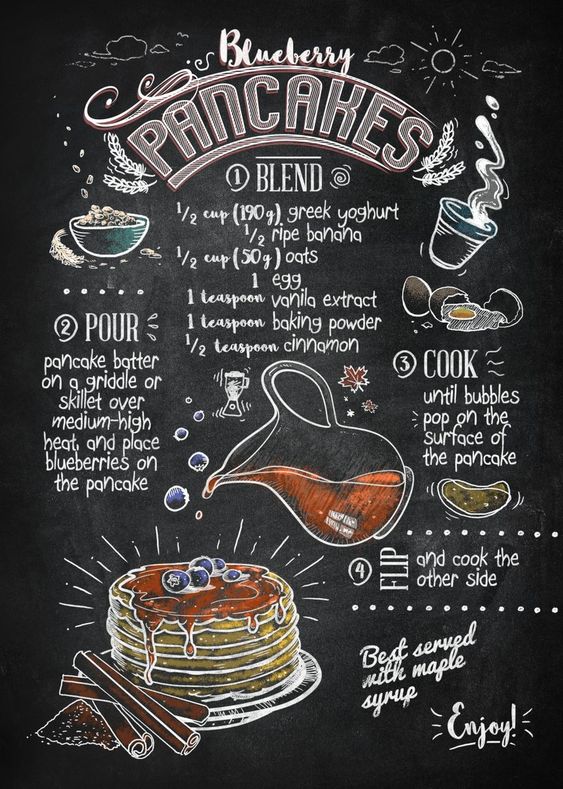 Blueberry
PANCAKES
1 BLEND
1/2 cup (190g) greek yoghurt
1/2 ripe banana
1/2 cup (50g) oats
1 egg
1 teaspoon vanila extract
1 teaspoon baking powder
1/2 teaspoon cinnamon
2 POUR
pancake batter
on a griddle or
skillet over
medium-high
heat, and place
blueberries on
the pancake
3 COOK
until bubbles
pop on the
surface of
the pancake
4 FLIP
and cook the
other side
Best served
with maple
syrup
Enjoy!